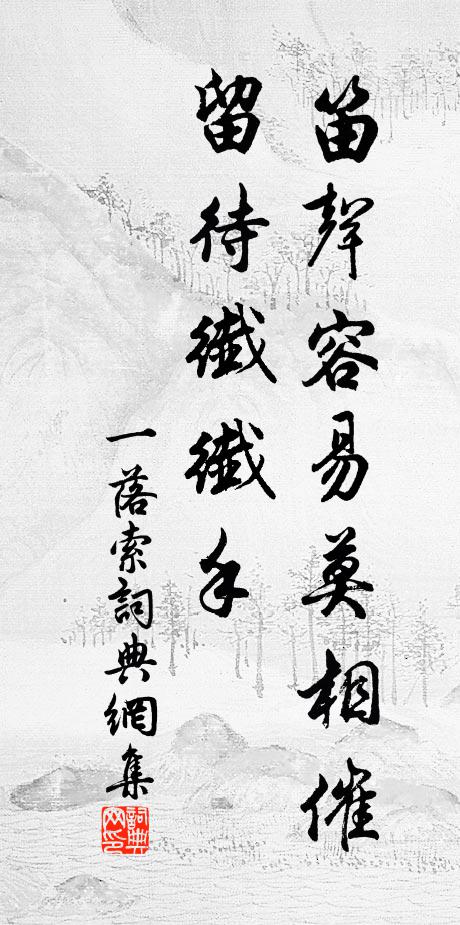 笛聲容易莫相催
留待纖纖手
一落索詞典網集
詞典网印